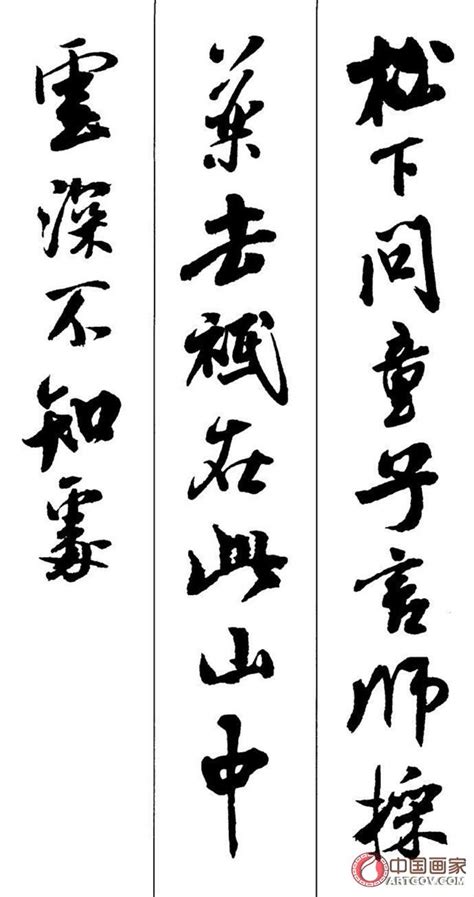 松下问童子言师採
药去祇在此山中
雲深不知處
中国画家
ARTGOV.COM